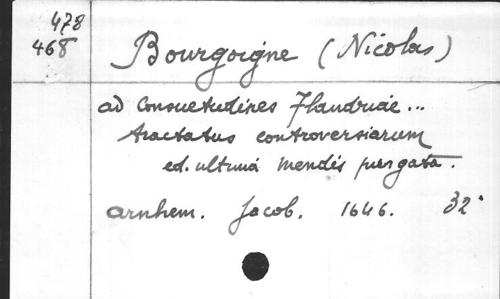 478
468
Bourgoigne (Nicolas)
ad Consuetudines Flandriae...
tractatus controversiarum
ed. ultima mendis purgata.
Arnhem. Jacob. 1646. 32°